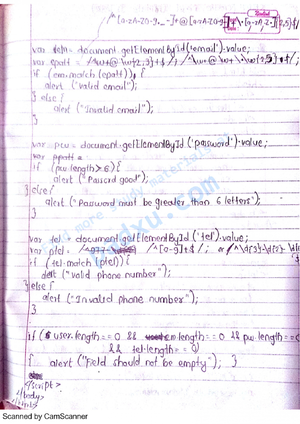 /^[a-zA-Z0-9._-]+@[a-zA-Z0-9.-]+\.[a-zA-Z]{2,5}$/
var em = document.getElementById('email').value;
var epatt = /^\w+@\w{2,3}+$/; /^\w+@\w+\.\w{2,5}$/;
if (em.match(epatt)) {
alert ("valid email");
} else {
alert ("Invalid email");
}
var pw = document.getElementById('password').value;
var ppatt =
if (pw.length > 6) {
alert ("Password good");
} else {
alert ("Password must be greater than 6 letters");
}
var tel = document.getElementById('tel').value;
var ptel = /^[0-9]+$/;
if (tel.match(ptel)) {
alert ("valid phone number");
} else {
alert ("Invalid phone number");
}
if (user.length == 0 && em.length == 0 && pw.length == 0
&& tel.length == 0)
{ alert ("field should not be empty"); }
</script>
</body>
</html>
Scanned by CamScanner